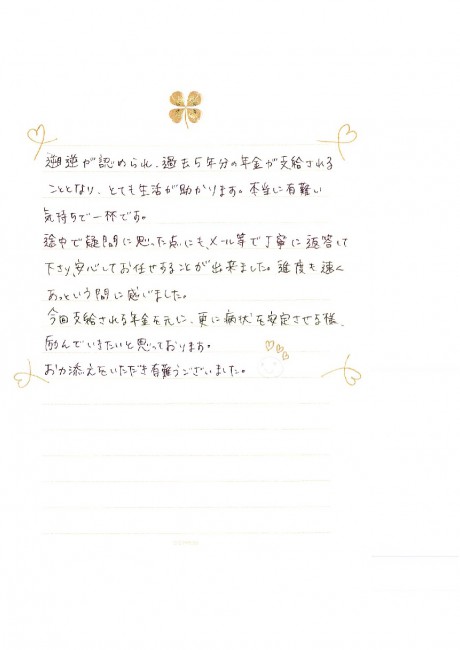 遡逆が認められ、過去5年分の年金が支給される
こととなり、とても生活が助かります。本当に有難い
気持ちで一杯です。
途中で疑問に思った点にも、メール等で丁寧に返答して
下さり、安心してお任せすることが出来ました。進度も速く
あっという間に感じました。
今回支給される年金を元に、更に病状を安定させる様、
励んでいきたいと思っております。
お力添えをいただき有難うございました。